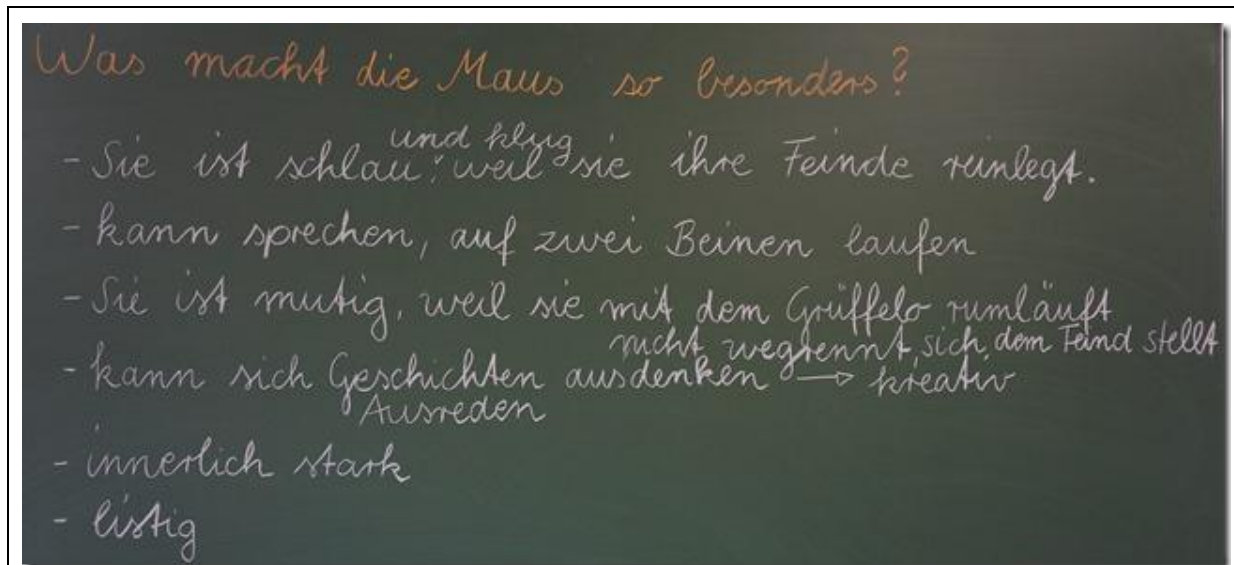 Was macht die Maus so besonders?
und klug
- Sie ist schlau, weil sie ihre Feinde reinlegt.
- kann sprechen, auf zwei Beinen laufen
- Sie ist mutig, weil sie mit dem Grüffelo rumläuft
nicht wegrennt, sich dem Feind stellt
- kann sich Geschichten ausdenken → kreativ
Ausreden
- innerlich stark
- listig